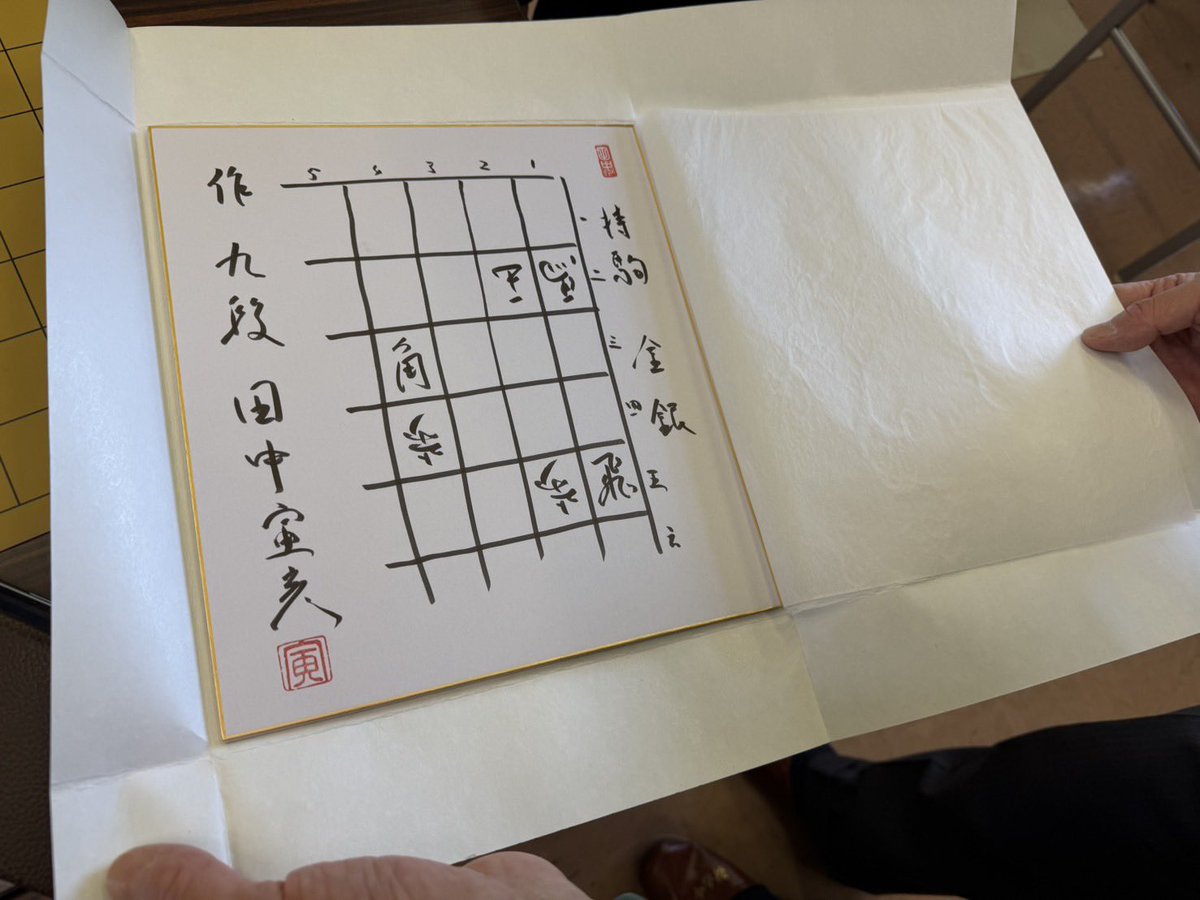 持駒 金 銀
5 4 3 2 1
一
二
三
四
五
六
角
歩
歩 飛
作 九段 田中寅彦
寅